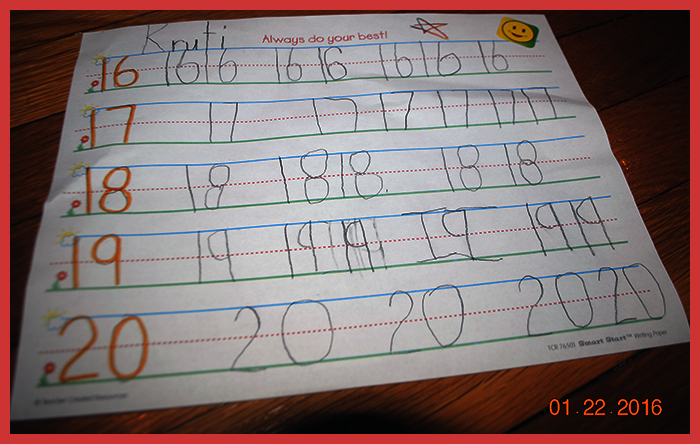 Kruti Always do your best!
16 16 16 16 16 16 16 16
17 17 17 17 17 17 17
18 18 18 18 18 18
19 19 19 19 19 19 19
20 20 20 20 20
TCR 76501 Smart Start™ Writing Paper
© Teacher Created Resources
01.22.2016